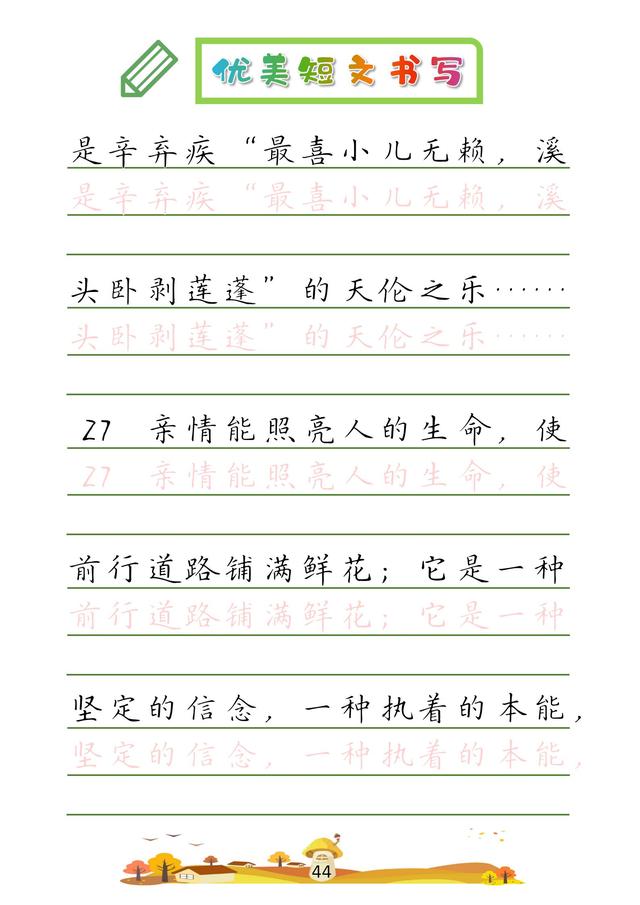 优美短文书写
是辛弃疾“最喜小儿无赖，溪
是辛弃疾“最喜小儿无赖，溪
头卧剥莲蓬”的天伦之乐……
头卧剥莲蓬”的天伦之乐……
27 亲情能照亮人的生命，使
27 亲情能照亮人的生命，使
前行道路铺满鲜花；它是一种
前行道路铺满鲜花；它是一种
坚定的信念，一种执着的本能，
坚定的信念，一种执着的本能，
44